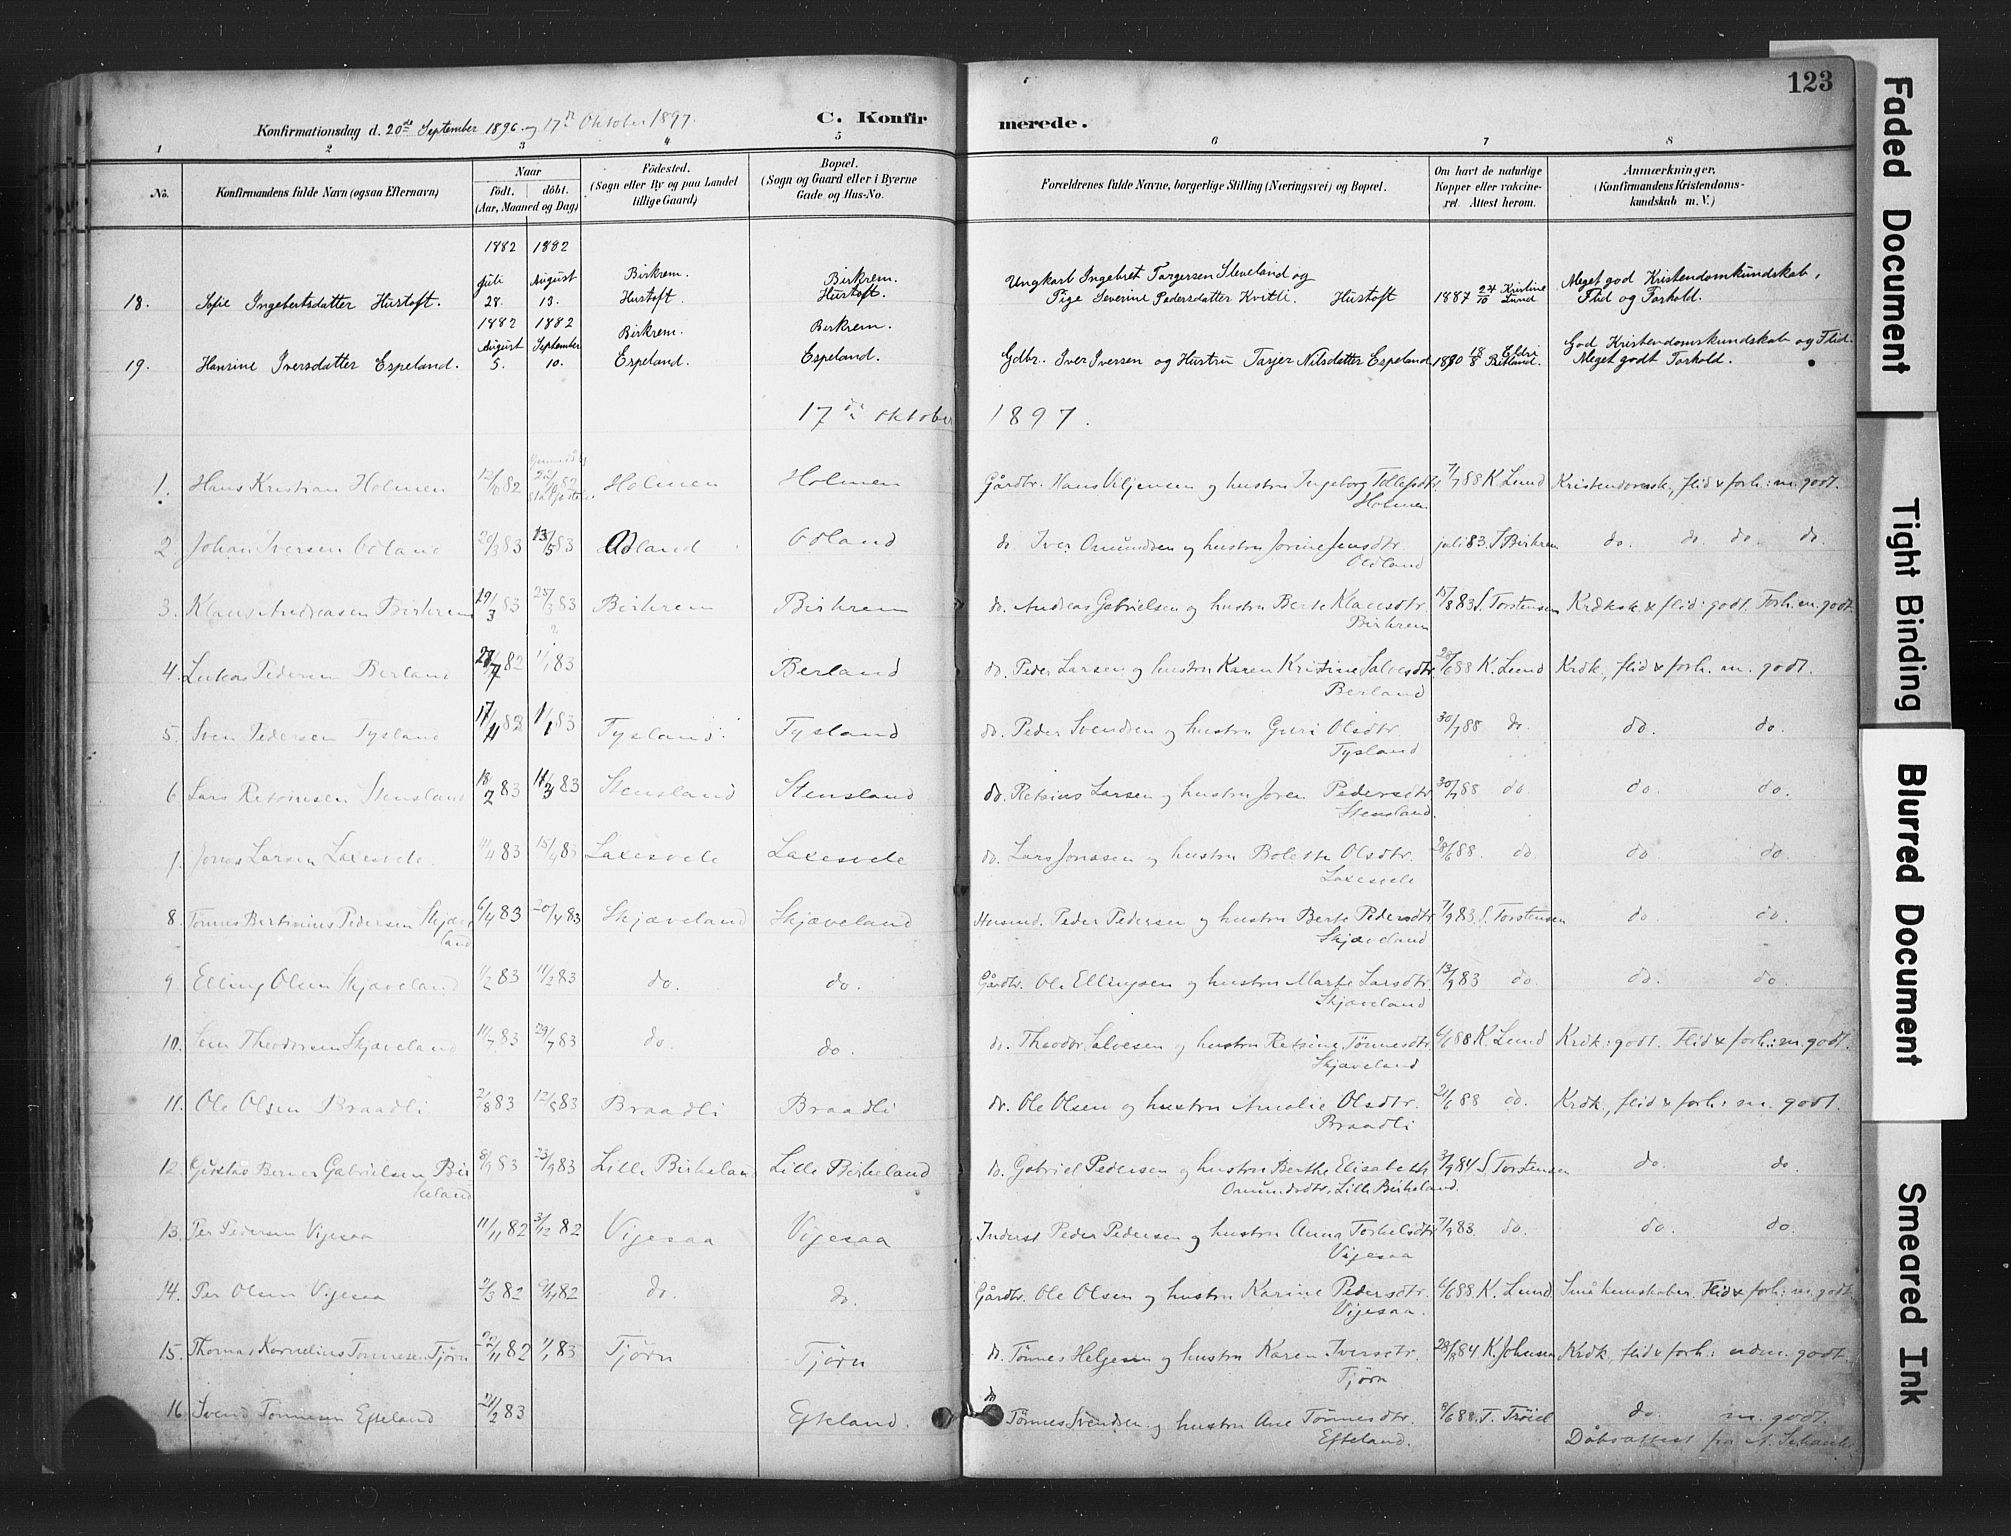 123
Konfirmationsdag d. 20de September 1896 og 17de Oktober 1897.
C. Konfirmerede.
1 2 3 4 5 6 7 8
No.
Konfirmandens fulde Navn (ogsaa Efternavn)
Naar
födt. döbt.
(Aar, Maaned og Dag)
Födested.
(Sogn eller By og paa Landet
tillige Gaard)
Bopæl.
(Sogn og Gaard eller i Byerne
Gade og Hus-No.
Forældrenes fulde Navne, borgerlige Stilling (Næringsvei) og Bopæl.
Om havt de naturlige
Kopper eller vakcine-
ret Attest herom.
Anmærkninger.
(Konfirmandens Kristendoms-
kundskab m. V.)
1882 1882
Juli August Birkrem. Birkrem. Ungkarl Ingebret Torgersen Sleveland og Meget god Kristendomkundskab,
18. Sofie Ingebertsdatter Hustoft. 28. 13. Hustoft. Hustoft. Pige Severine Pedersdatter Kvitle. Hustoft 1887 24/10 Kristine Lund Flid og Forhold.
1882 1882
August September Birkrem. Birkrem. God Kristendomskundskab og Flid.
19. Hansine Iversdatter Espeland. 5. 10. Espeland. Espeland. Gdbr. Iver Iversen og Hustru Tarjer Nilsdatter Espeland 18/8 Eldri Birkeland. Meget godt Forhold.
17de Oktober 1897.
1. Hans Kristian Holmen 82 82 Holmen Holmen Gårdbr. Hans Viljemsen og hustru Ingeborg Tollefsdtr. 7/7 88 K Lund Kristendomsk., flid & forh.: m. godt.
Holmen
2 Johan Iversen Odland 20/3 83 13/5 83 Odland Odland do Iver Omundsen og hustru Jorine Jensdtr. juli 83. T Birkrem do. do. do. do.
Odland
3. Klaus Andreasen Birkrem 19/3 83 25/3 83 Birkrem Birkrem do. Andreas Gabrielsen og hustru Berte Klausdtr. 15/8 83 S. Torstensen Krdksk & flid: godt. Forh. m. godt.
Birkrem
4. Lukas Pedersen Berland 82 1/1 83 Berland do. Peder Larsen og hustru Karen Kristine Salvesdtr. 28/6 88 K. Lund Krdk, flid & forh. m. godt.
Berland
5. Sven Pedersen Tysland 17/11 82 1/1 83 Tysland Tysland do. Peder Svendsen og hustru Guri Olsdtr. 30/7 88 do. do. do.
Tysland
6 Lars Retsiusen Stensland 18/2 83 11/3 83 Stensland Stensland do. Retsius Larsen og hustru Joren Pedersdtr 30/7 88 do. do. do.
Stensland.
7. Jonas Larsen Laxesvele. 4/4 83 15/4 83 Laxesvele Laxesvele do. Lars Jonasen og hustru Bolette Olsdtr. 28/6 88. do do do.
Laxesvele
8. Tönnes Bertinius Pedersen Skjæve 6/4 83 20/4 83 Skjæveland Skjæveland Husmd. Peder Pedersen og hustru Berte Pedersdtr 7/9 83. S. Torstensen do do.
land Skjæveland
9. Elling Olsen Skjæveland 1/2 83 11/2 83 do. do. Gårdbr. Ole Ellingsen og hustru Marte Larsdtr. 13/9 83 do. do. do.
Skjæveland
10. Theodorsen Skjæveland 11/7 83 29/7 83 do. do. do. Theodor Salvesen og hustru Retsine Tønnesdtr. 6/6 88 K. Lund Krdk: godt. Flid & forh.: m. godt.
Skjæveland
11. Ole Olsen Braadli 2/8 83 12/8 83 Braadli Braadli do. Ole Olsen og hustru Amalie Olsdtr. 21/6 88 do. Krdk, flid & forh.: m. godt.
Braadli
12. Gustav Berner Gabrielsen Bir 8/9 83 23/9 83 Lille Birkeland Lille Birkeland do. Gabriel Pedersen og hustru Berthe Elisabeth 3/9 84 S. Torstensen do. do.
keland Omundsdtr, Lille Birkeland.
13. Per Pedersen Vigesaa 11/11 82 3/12 82 Vigesaa Vigesaa Inderst Peder Pedersen og hustru Anna Torkelsdtr 7/9 83. do. do do.
Vigesaa
14. Per Olsen Vigesaa 82 82 do. do. Gårdbr. Ole Olsen og hustru Karine Pedersdtr. 6/6 88 K. Lund. Små kunskaber. Flid & forh: m. godt.
Vigesaa.
15. Thomas Kornelius Tønnesen Tjörn 22/11 82 1/1 83 Tjørn Tjørn do. Tønnes Helgesen og hustru Karen Iversdtr. 28/8 84 K. Johnsen Krdk, flid & forh.: udm. godt.
Tjørn
16. Svend Tönnesen Efteland 21/2 83 Efteland. do Tønnes Svendsen og hustru Ane Tønnesdtr. 8/6 88. T. Tröiel do. m. godt.
Efteland. Dåbsattest fra
Faded Document
Tight Binding
Blurred Document
Smeared Ink